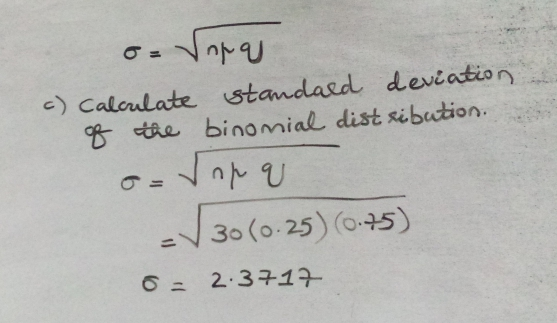 σ = √npq
c) Calculate standard deviation
of the binomial distribution.
σ = √npq
= √30(0.25)(0.75)
σ = 2.3717